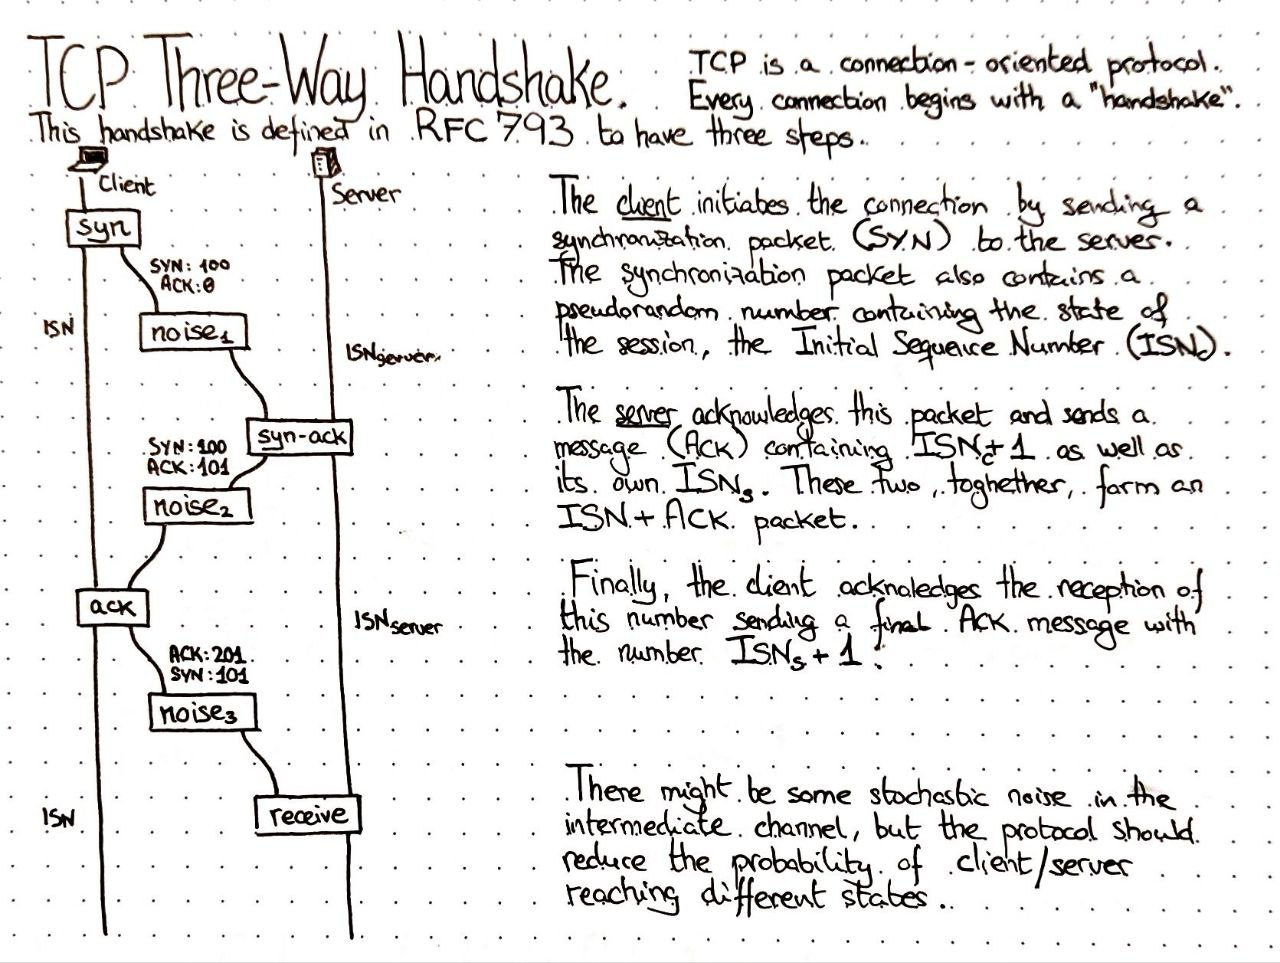 TCP Three-Way Handshake.
TCP is a connection-oriented protocol.
Every connection begins with a "handshake".
This handshake is defined in RFC 793 to have three steps.
Client
Server
syn
SYN: 100
ACK:0
ISN
noise₁
ISNserver
syn-ack
SYN:100
ACK:101
noise₂
ack
ISNserver
ACK:201
SYN:101
noise₃
receive
ISN
The client initiates the connection by sending a
synchronization packet (SYN) to the server.
The synchronization packet also contains a
pseudorandom number containing the state of
the session, the Initial Sequence Number (ISNc).
The server acknowledges this packet and sends a
message (ACK) containing ISNc+1 as well as
its own ISNs. These two, toghether, form an
ISN+ACK packet.
Finally, the client acknaledges the reception of
this number sending a final ACK message with
the number ISNs+1.
There might be some stochastic noise in the
intermediate channel, but the protocol should
reduce the probability of client/server
reaching different states.